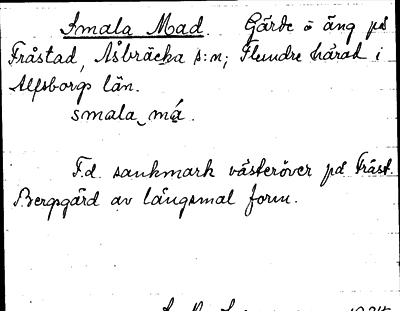 Smala Mad. Gärde o äng på
Fråstad, Åsbräcka s:n; Flundre härad i
Älfsborgs län.
smala må.
F.d. sankmark västeröver på Fråst.
Bergsgård av långsmal form.